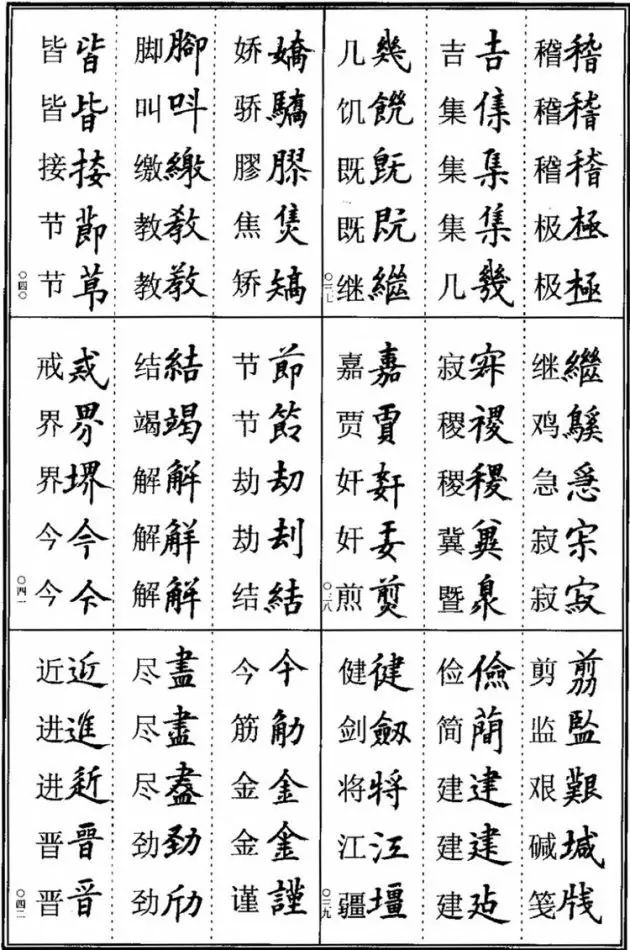 稽稽 稽稽 稽稽 极極 极極
吉吉 集 集集 集集 几幾
几幾 饥饑 既既 既既 继繼
〇三七
继繼 鸡鷄 急急 寂 寂寂
寂 稷稷 稷稷 冀冀 暨
嘉嘉 贾賈 奸奸 奸 煎
〇三八
剪剪 监監 艰艱 碱堿 笺牋
俭儉 简簡 建建 建建 建
健健 剑劔 将将 江江 疆壃
〇三九
娇嬌 骄驕 膠膠 焦 矫矯
脚腳 叫叫 缴繳 教教 教教
皆皆 皆皆 接接 节節 节
〇四〇
节節 节節 劫劫 劫刦 结結
结結 竭竭 解解 解觧 解觧
戒戒 界界 界堺 今今 今
〇四一
今今 筋 金金 金金 谨謹
尽盡 尽盡 尽盡 劲勁 劲
近近 进進 进 晋晉 晋晋
〇四二